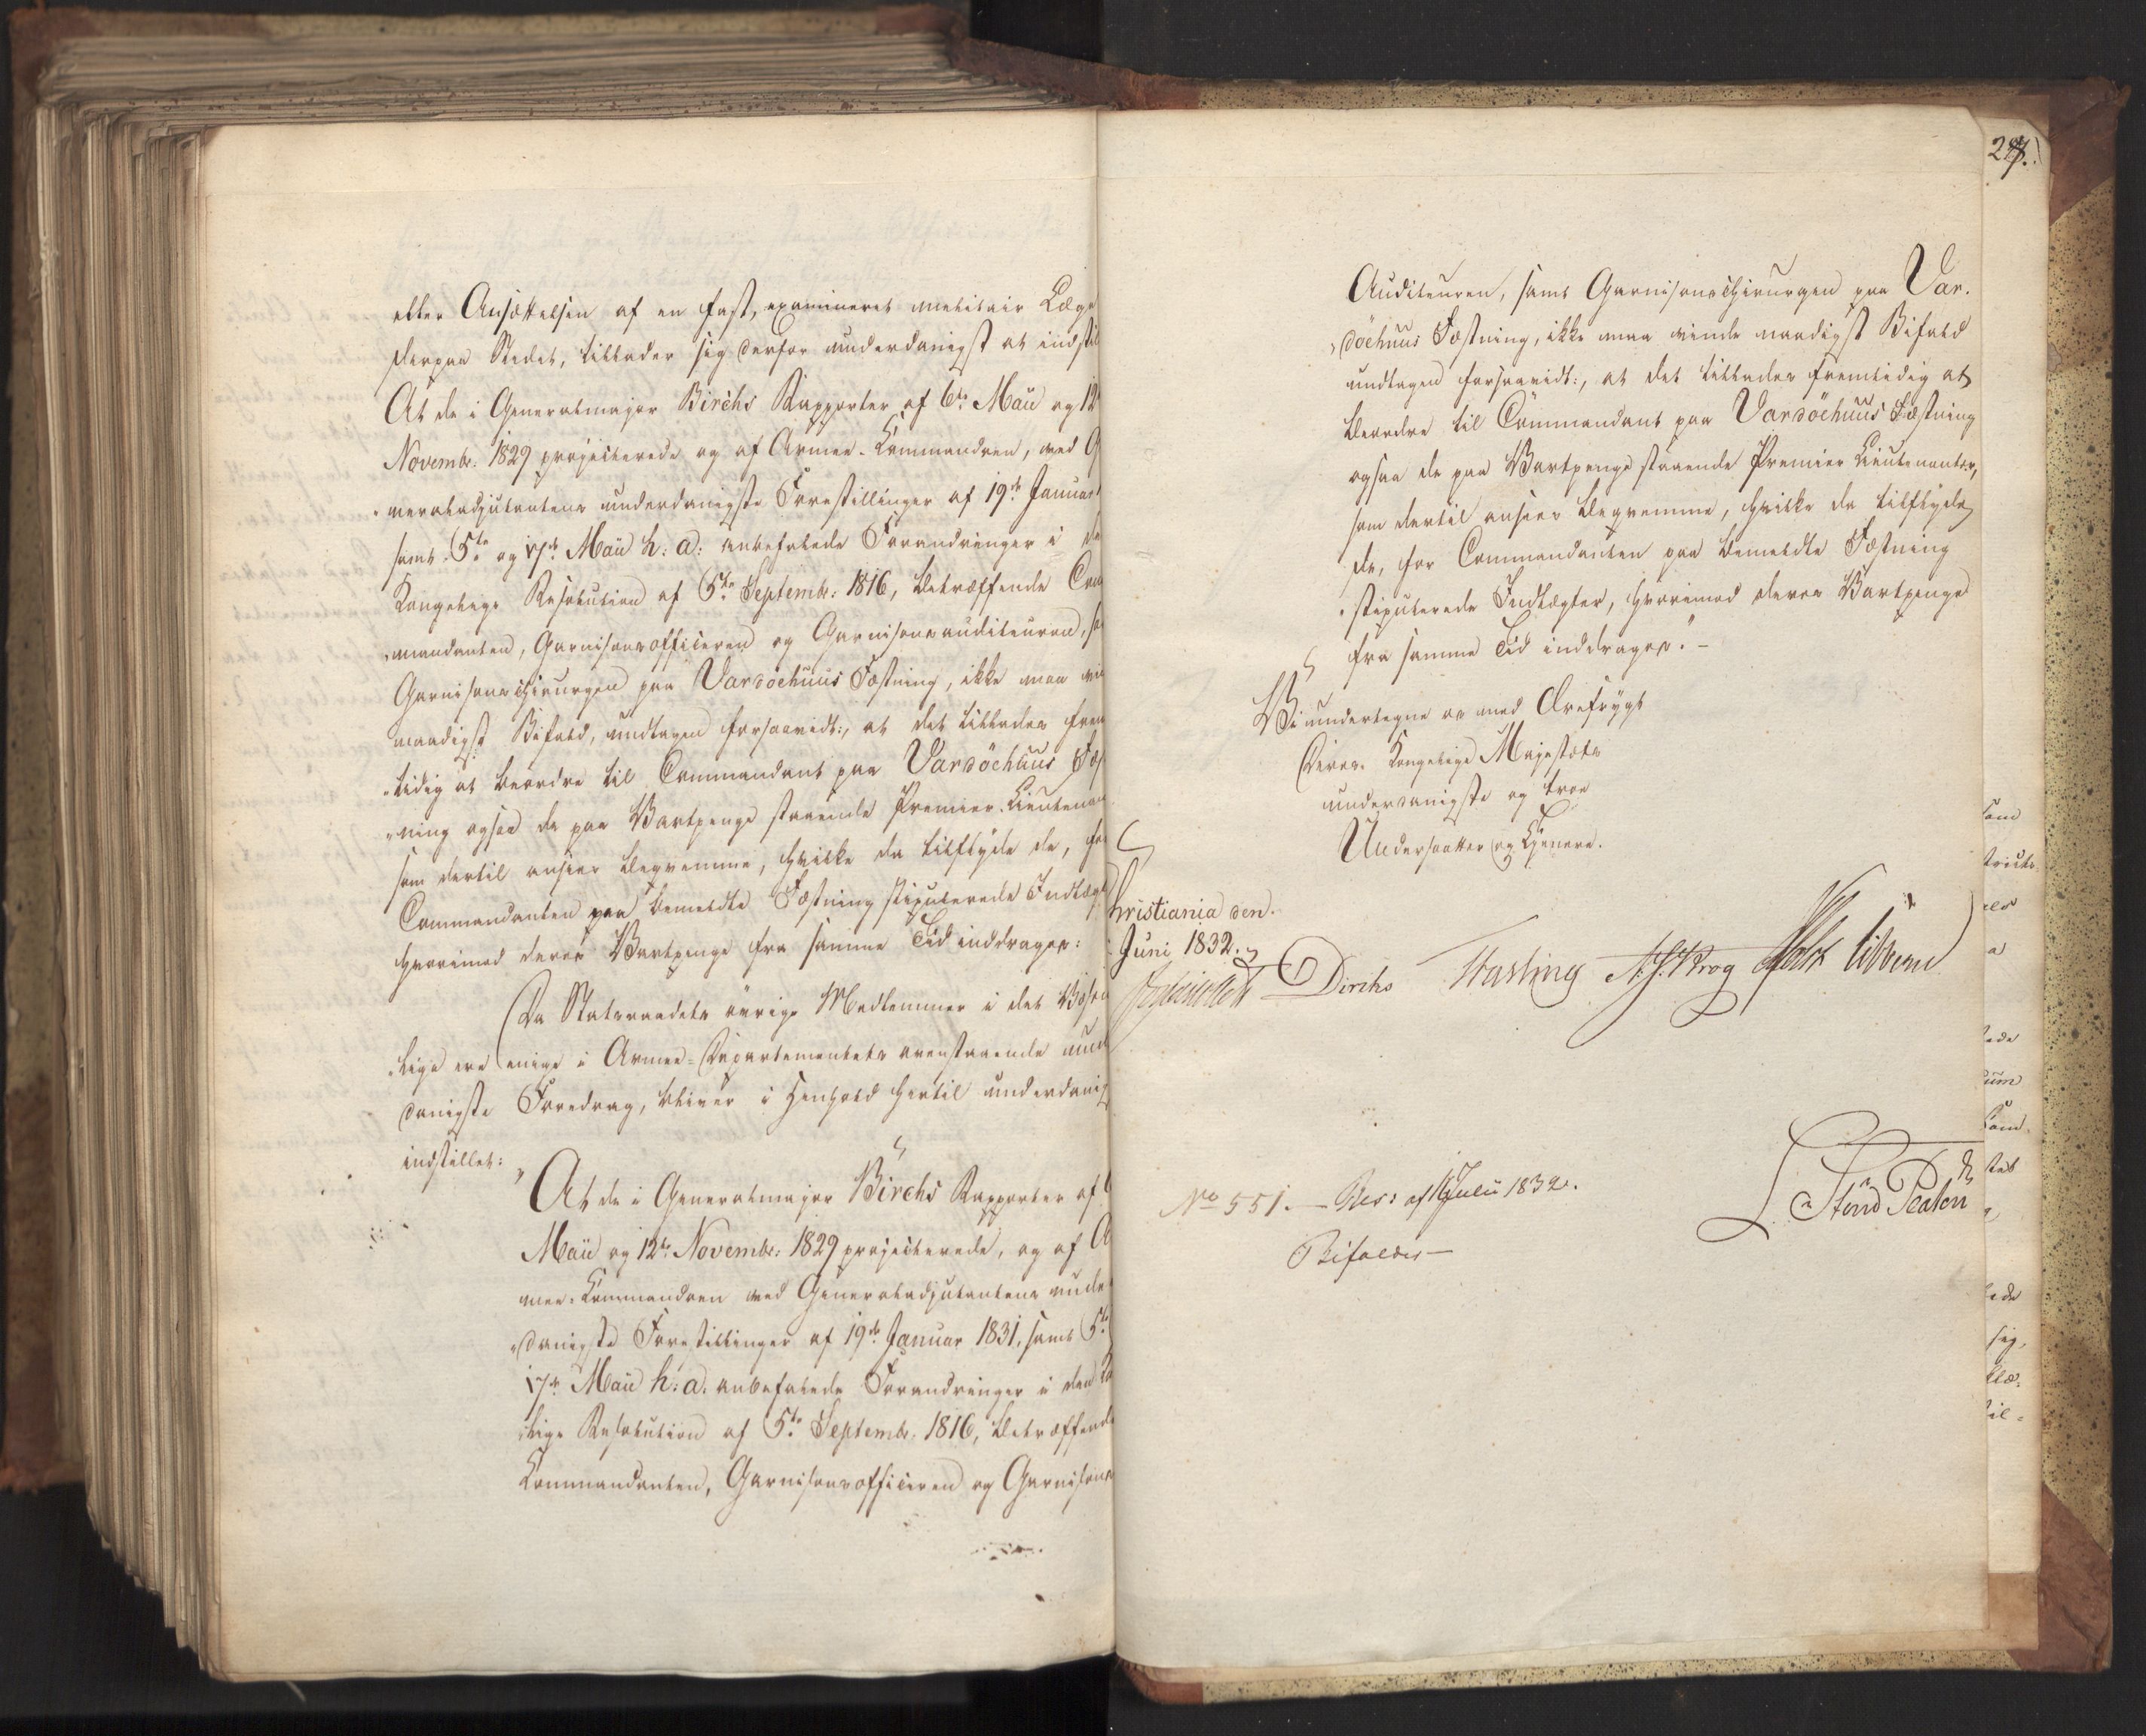 eller Ansættelsen af en fast, examineret militair Læge
sterpaa Stedet, tillader sig derfor underdanigst at indstil
At de i Generalmajor Birchs Rapporter af 6te Maii og 12
Novembr: 1829 projecterede og af Armee-Kommandoen, med G
neraladjutantens underdanigste Forestillinger af 19de Januar
samt 5te og 17de Maii h: a: anbefalede Forandringer i de
Kongelige Resolution af 5te Septembr: 1816, betræffende Com
mandanten, Garnisonsofficeren og Garnisonsauditeuren, sa
Garnisonschirurgen paa Vardöehuus Fæstning, ikke maa vin
naadigst Bifald, undtagen forsaavidt:, at det tillades frem
tidig at beordre til Commandant paa Vardöehuus Fæst
ning ogsaa de paa Vartpenge staaende Premier-Lieutenan
som dertil ansees beqvemme, hvilke da tilflyde de, for
Commandanten paa bemeldte Fæstning stipulerede Indtægt
hvorimod deres Vartpenge fra samme Tid inddrages:
Da Statsraadets øvrige Medlemmer i det Væsen
lige ere enige i Armee-Departementets ovenstaaende und
danigste Foredrag, bliver i Henhold hertil underdanig
indstillet:
"At de i Generalmajor Birchs Rapporter af 6
Maii og 12te Novembr: 1829 projecterede, og af A
mee-Kommandoen med Generaladjutantens unde
danigste Forestillinger af 19de Januar 1831, samt 5te
17de Maii h: a. anbefalede Forandringer i den Ko
lige Resolution af 5te Septembr: 1816, betræffende
Kommandanten, Garnisonsofficeren og Garnisons
227.
Auditeuren, samt Garnisonschirurgen paa Var-
döehuus Fæstning, ikke maa vinde naadigst Bifald
undtagen forsaavidt:, at det tillades fremtidig at
beordre til Commandant paa Vardöehuus Fæstning
ogsaa de paa Vartpenge staaende Premier Lieutenanter,
som dertil ansees beqvemme, hvilke da tilflyde
de, for Commandanten paa bemeldte Fæstning
stipulerede Indtægter, hvorimod deres Vartpenge
fra samme Tid inddrages." -
Vi undertegne os med Ærefrygt
Deres Kongelige Majestæts
underdanigste og troe
Undersaatter og Tjenere.
Christiania den
Juni 1832.
Diriks Fasting N. J. Krog Holst Vibe
No 551. - Res: af 11 Julii 1832.
Bifaldes -